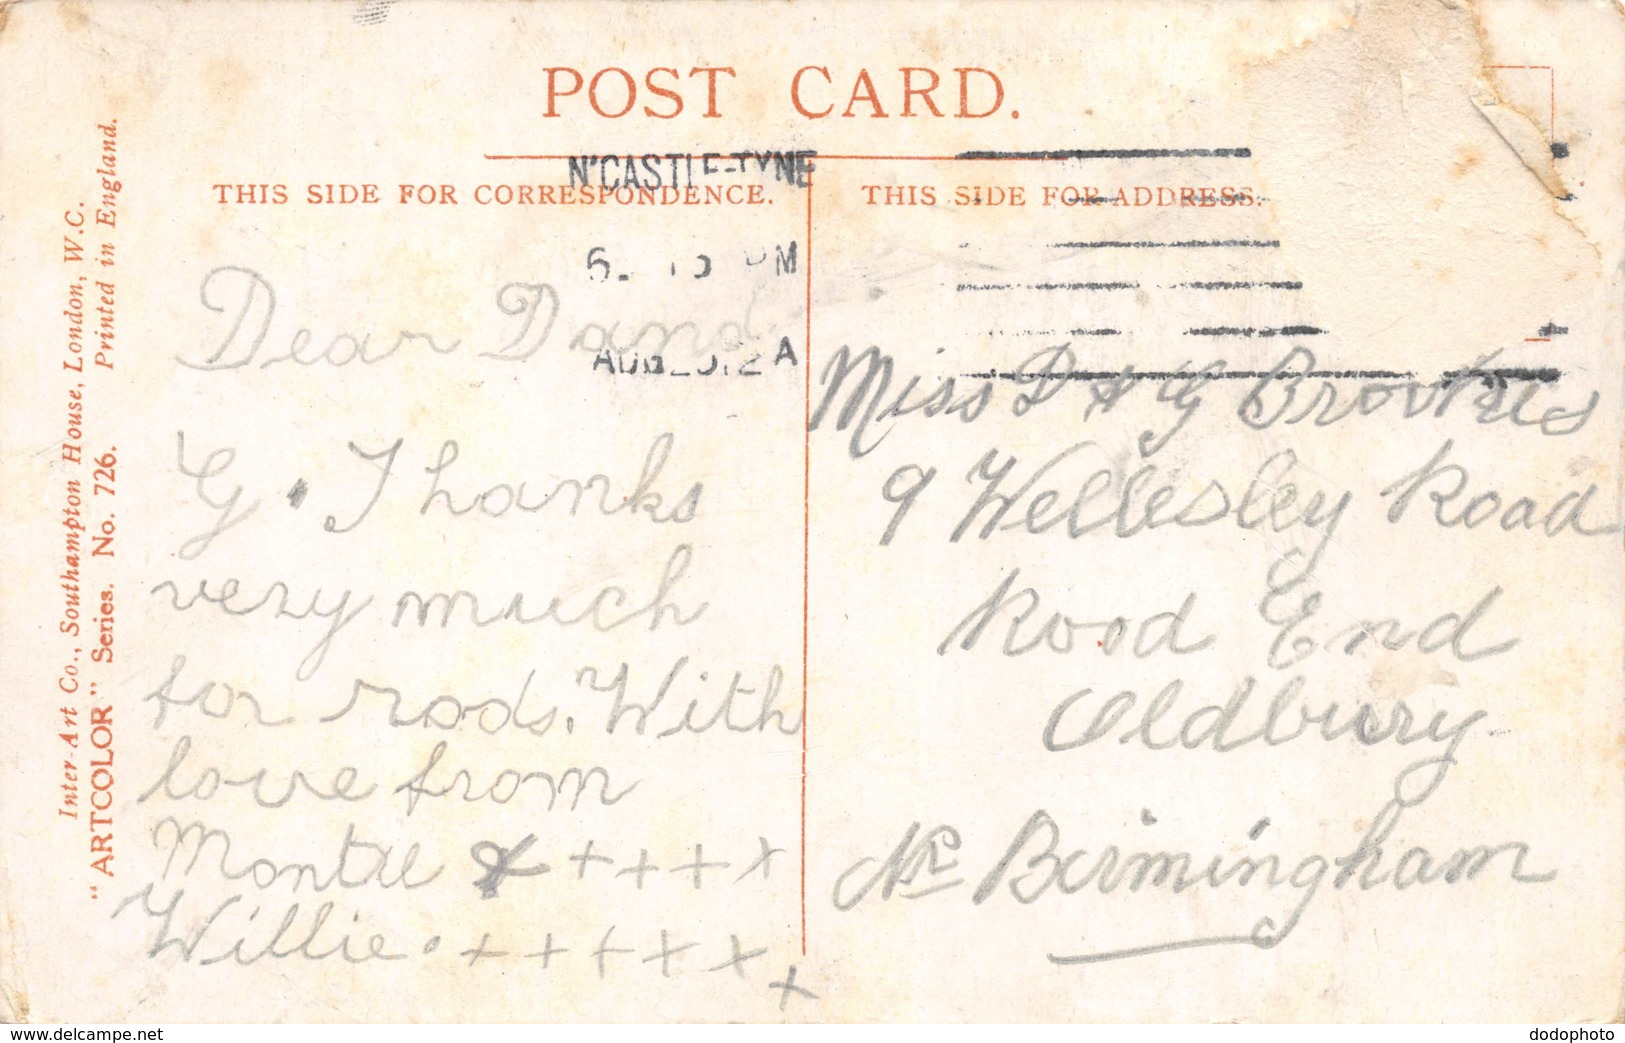 POST CARD.
THIS SIDE FOR CORRESPONDENCE.
THIS SIDE FOR ADDRESS.
N'CASTLE-TYNE
PM
A
Inter-Art Co., Southampton House, London, W.C.
"ARTCOLOR" Series. No. 726. Printed in England.
Dear D and
G. Thanks
very much
for rods. With
love from
Montre x + + + + x
Willie. + + + x x x
Miss D & G
9 Wellesley Road
Rood End
Oldbury
Nr Birmingham
www.delcampe.net
dodophoto